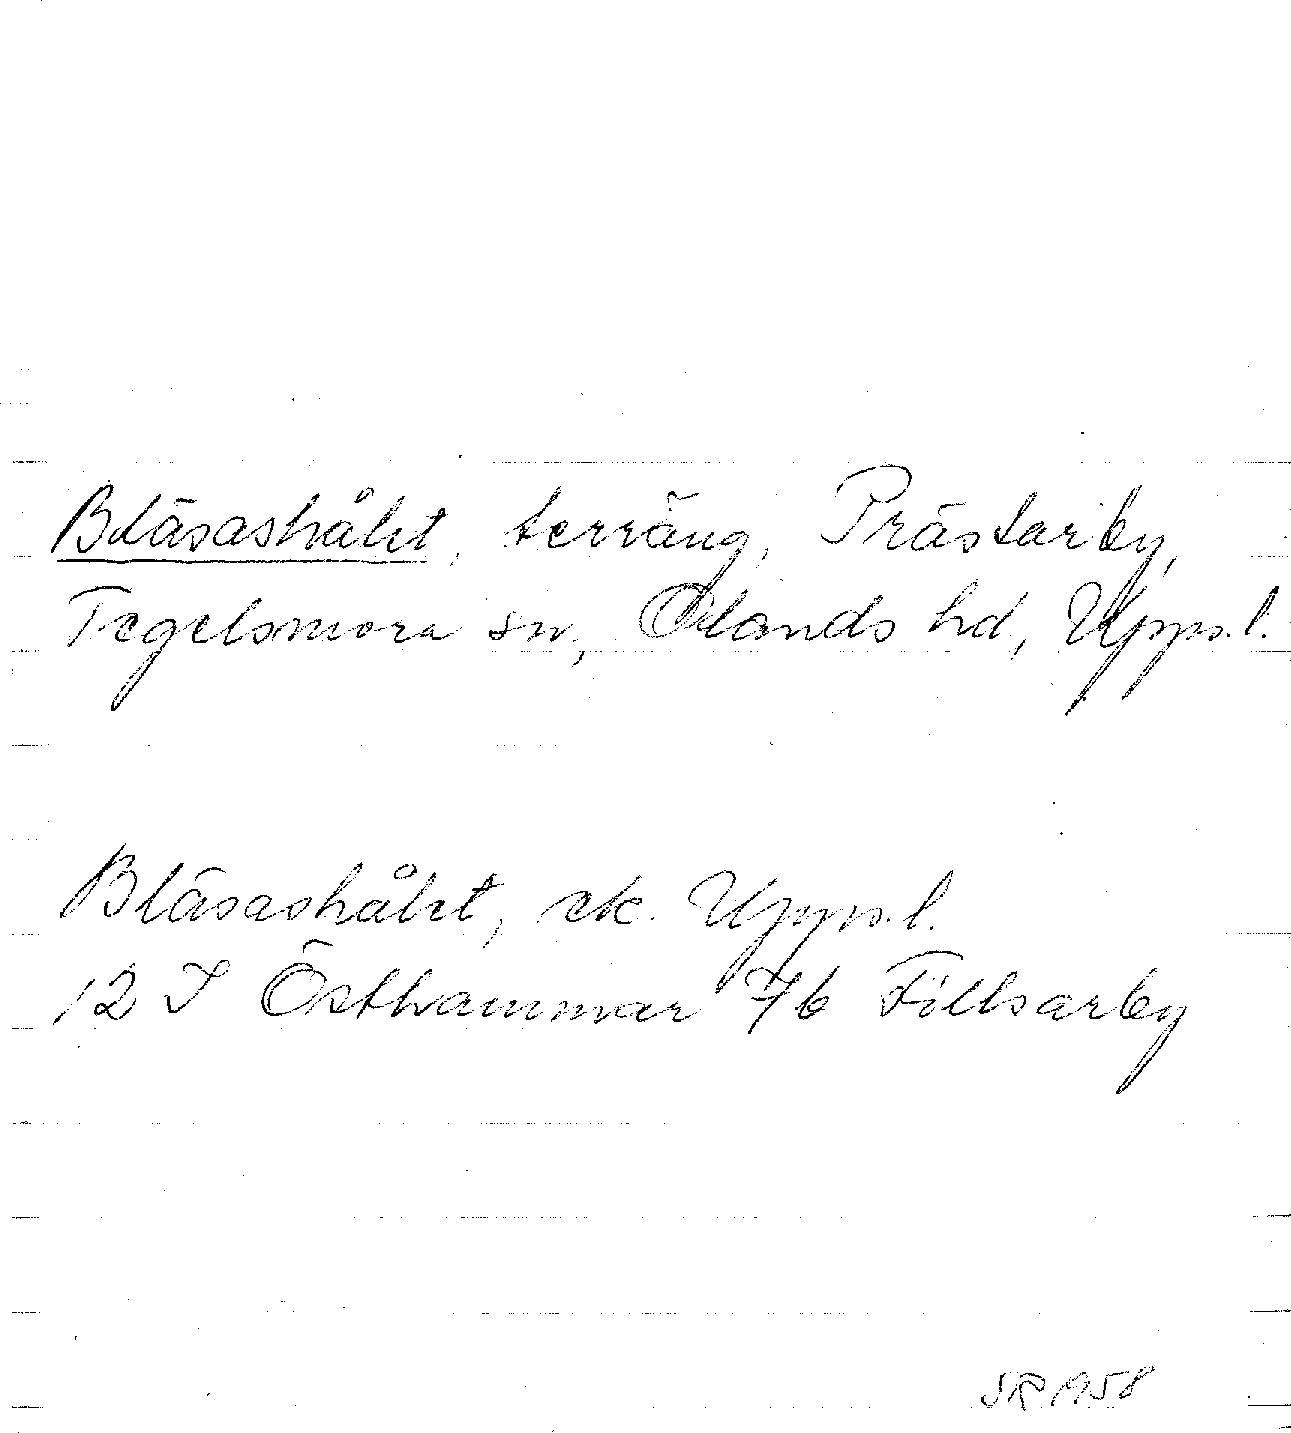 Bläsashålet, terräng, Prästarby,
Tegelsmora sn, Ölands hd, Upps.l.
Bläsashålet, ek. Upps.l.
12 I Östhammar 7b Fillsarby
SR 1958